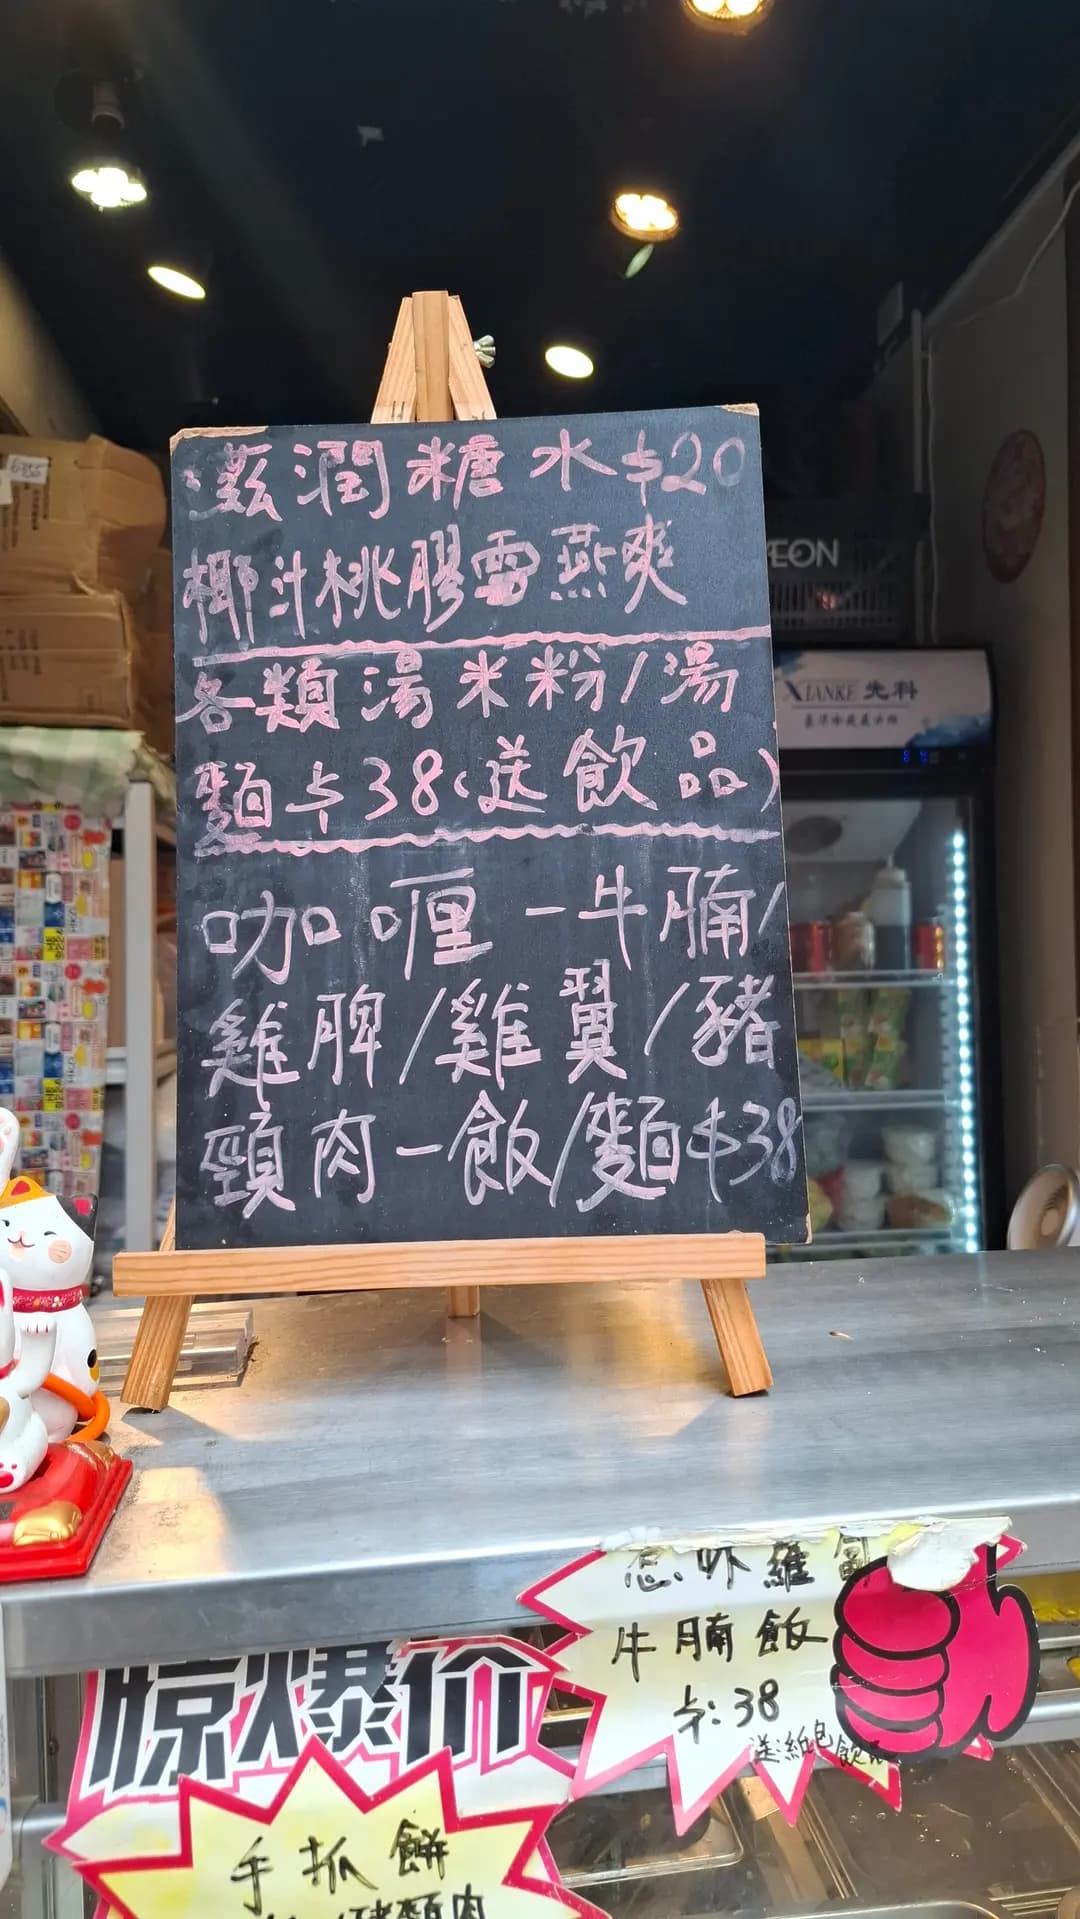 滋潤糖水$20
椰汁桃膠雪燕爽
各類湯米粉/湯
麵$38(送飲品)
咖喱-牛腩/
雞脾/雞翼/豬
頸肉-飯/麵$38
6355
AEON
XIANKE 先科
牛腩飯
$:38
送紙包飲品
惊爆价
手抓餅